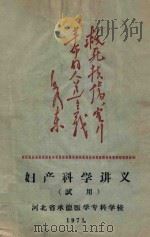 救死扶傷，實行
革命的人道主義
毛澤東
妇产科学讲义
（试用）
河北省承德医学专科学校
1971